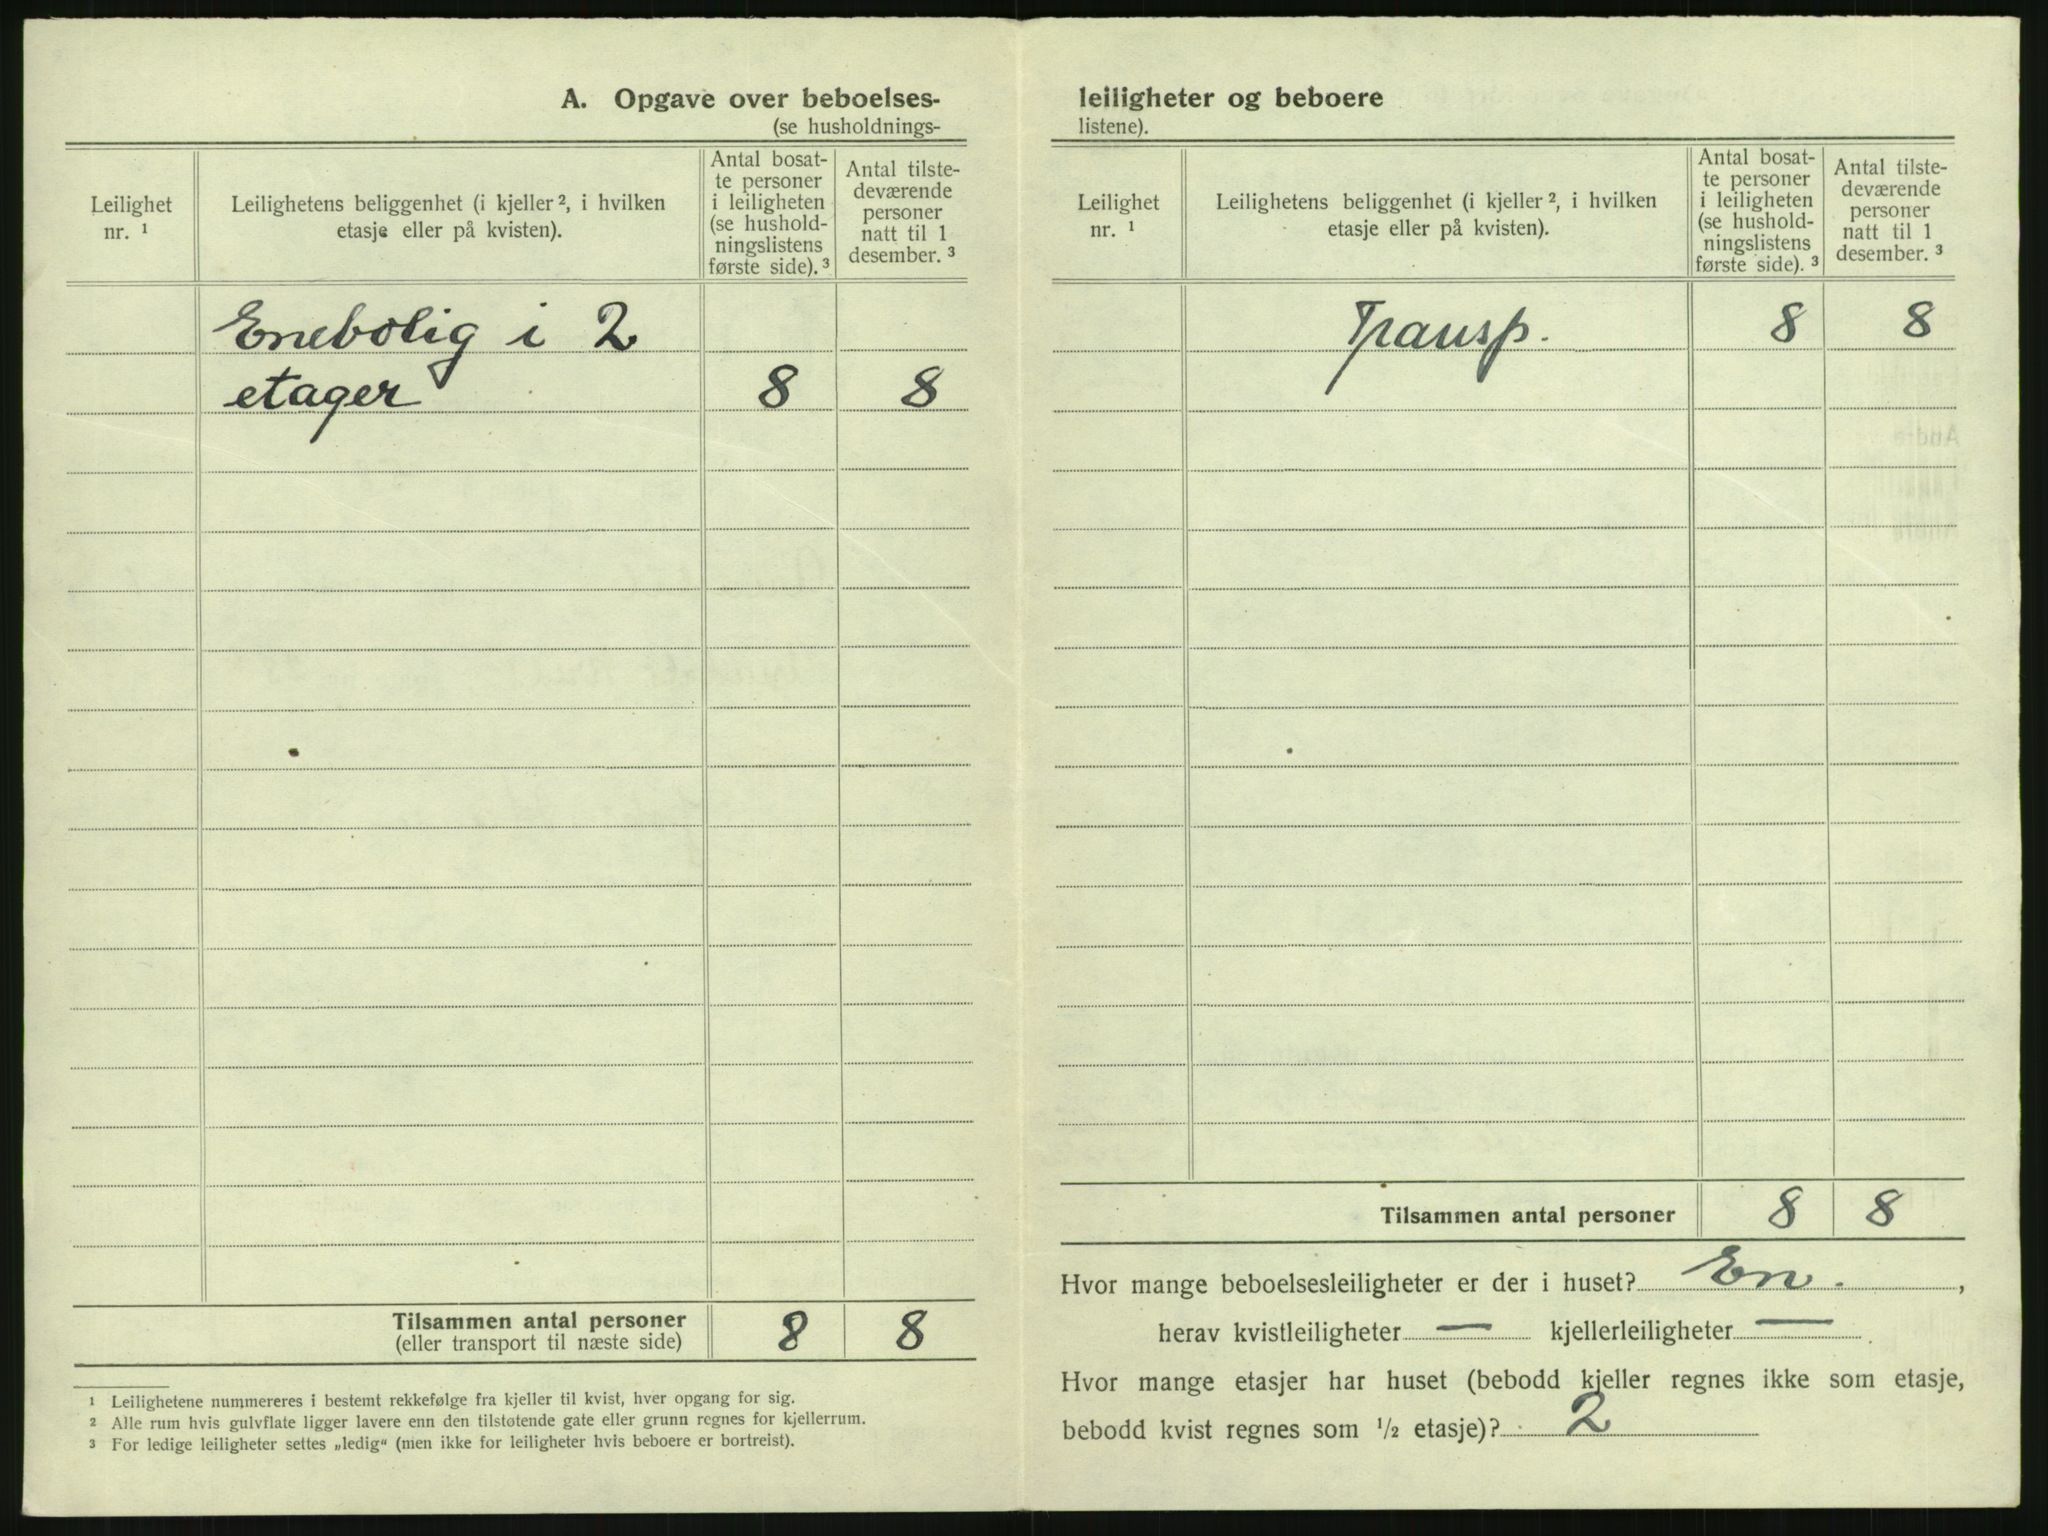 A. Opgave over beboelses-
(se husholdnings-
Leilighet
nr. ¹
Leilighetens beliggenhet (i kjeller ², i hvilken
etasje eller på kvisten).
Antal bosat-
te personer
i leiligheten
(se hushold-
ningslistens
første side). ³
Antal tilste-
deværende
personer
natt til 1
desember. ³
Enebolig i 2
etager 8 8
Tilsammen antal personer
(eller transport til næste side)
8 8
¹ Leilighetene nummereres i bestemt rekkefølge fra kjeller til kvist, hver opgang for sig.
² Alle rum hvis gulvflate ligger lavere enn den tilstøtende gate eller grunn regnes for kjellerrum.
³ For ledige leiligheter settes „ledig“ (men ikke for leiligheter hvis beboere er bortreist).
leiligheter og beboere
listene).
Leilighet
nr. ¹
Leilighetens beliggenhet (i kjeller ², i hvilken
etasje eller på kvisten).
Antal bosat-
te personer
i leiligheten
(se hushold-
ningslistens
første side). ³
Antal tilste-
deværende
personer
natt til 1
desember. ³
Transp. 8 8
Tilsammen antal personer 8 8
Hvor mange beboelsesleiligheter er der i huset? En. ,
herav kvistleiligheter — kjellerleiligheter —
Hvor mange etasjer har huset (bebodd kjeller regnes ikke som etasje,
bebodd kvist regnes som ½ etasje)? 2